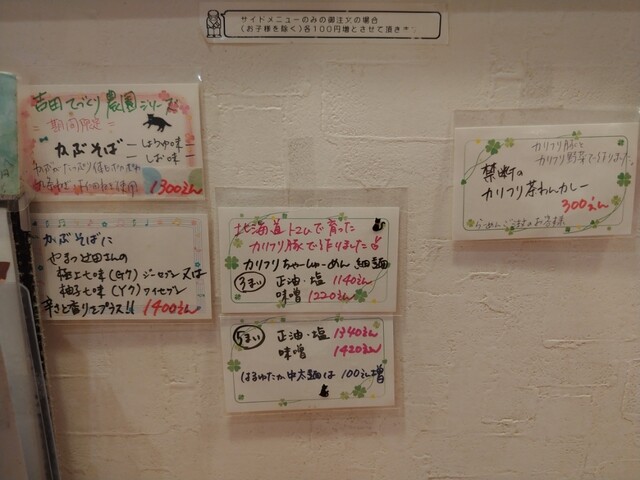 サイドメニューのみの御注文の場合
(お子様を除く)各100円増とさせて頂きます
吉田てづくり農園シリーズ
期間限定
かぶそば
しょうゆ味
しお味
使用 1300えん
かぶそばに
やまつ辻田さんの
極上七味(G7)ジーセブン又は
柚子七味(Y7)ワイセブン
辛さと香りをプラス!! 1400えん
北海道トムで育った
カリフリ豚で作りました
カリフリちゃーしゅーめん 細麺
3まい 正油・塩 1140えん
味噌 1220えん
5まい 正油・塩 1340えん
味噌 1420えん
はるゆたか中太麺は 100えん増
カリフリ豚と
カリフリ野菜で作りました
禁断の
カリフリ茶わんカレー
300えん
らーめんご注文のお客様